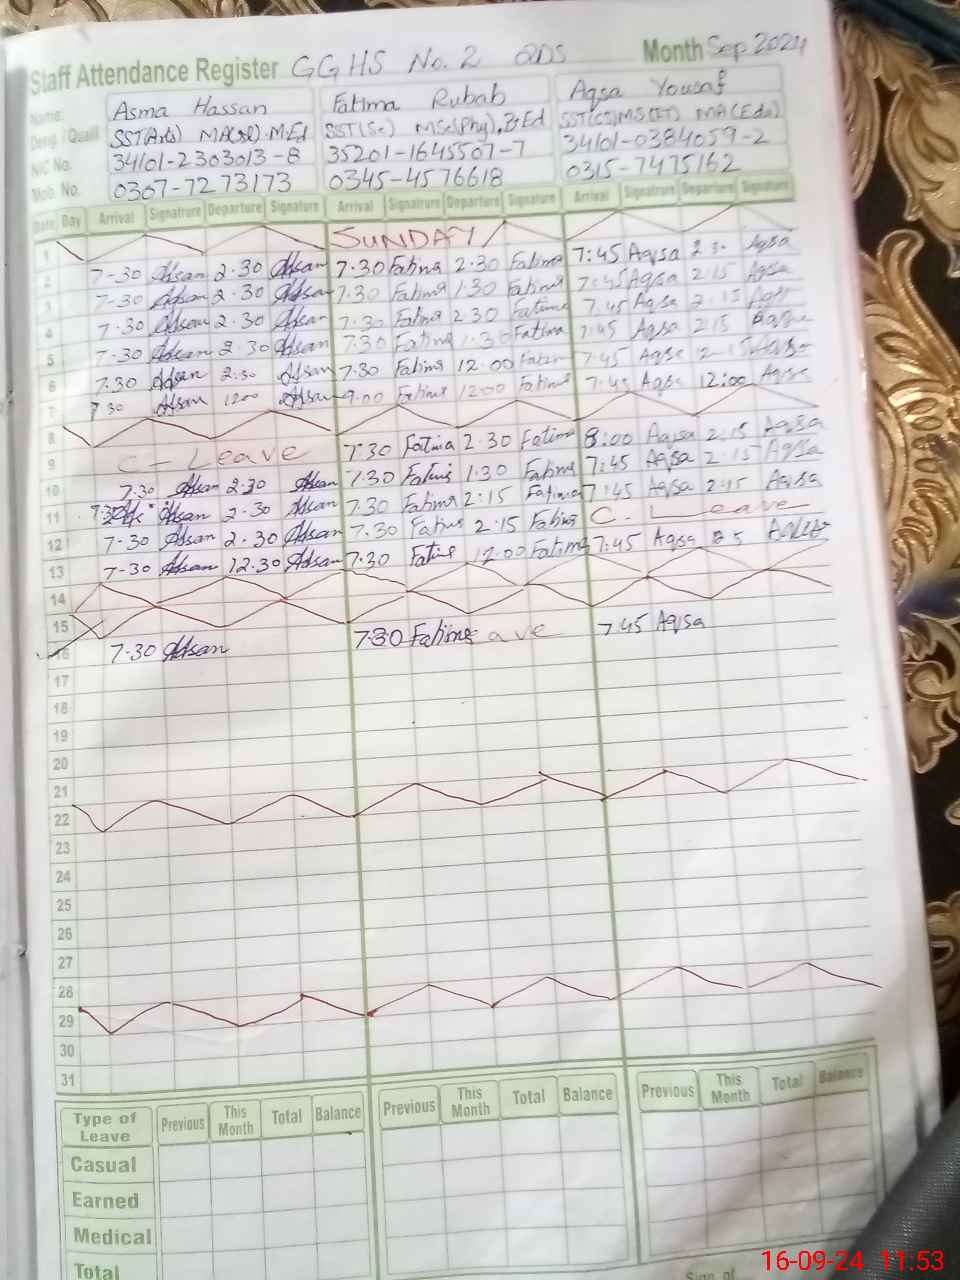 Staff Attendance Register GGHS No. 2 Month Sep 2024
Name: Asma Hassan Fatima Rubab Aqsa Yousaf
Desig. / Quali SST(Arts) M.Ed SST(Sc) MSc(Phy), B.Ed
NIC No. 34101-2303013-8 35201-1645507-7 34101-0384059-2
Mob No. 0307-7273173 0345-4576618 0315-7475162
Date Day Arrival Signatrure Departure Signature Arrival Signatrure Departure Signature Arrival Signatrure Departure Signature
1 SUNDAY
2 7-30 2.30 7.30 Fatima 2.30 Fatima 7:45 Aqsa Aqsa
3 7-30 2.30 7.30 Fatima 1.30 Fatima 7:45 Aqsa 2:15 Aqsa
4 7.30 2.30 7.30 Fatima 2.30 Fatima 7.45 Aqsa 2:15
5 7.30 2.30 7.30 Fatima 1.30 Fatima 7:45 Aqsa 2:15
6 7.30 2.30 7.30 Fatima 12.00 7:45 Aqsa
7 7 30 1200 9.00 Fatima 12:00 Fatima 7:45 Aqsa 12:00
8
9 C - Leave 7:30 Fatima 2.30 Fatima 8:00 Aqsa 2:15 Aqsa
10 7.30 2.30 7.30 1.30 Fatima 7:45 Aqsa 2:15 Aqsa
11 2.30 7.30 Fatima 2:15 Fatima 7:45 Aqsa 2:15 Aqsa
12 7-30 2.30 7.30 2.15 C. Leave
13 7-30 12.30 7:30 12.00 Fatima 7:45 Aqsa
14
15
16 7.30 7.30 Fatima ave 7.45 Aqsa
17
18
19
20
21
22
23
24
25
26
27
28
29
30
31
Type of Leave Previous This Month Total Balance Previous This Month Total Balance Previous This Month Total Balance
Casual
Earned
Medical
Total
Sign of
16-09-24 11:53